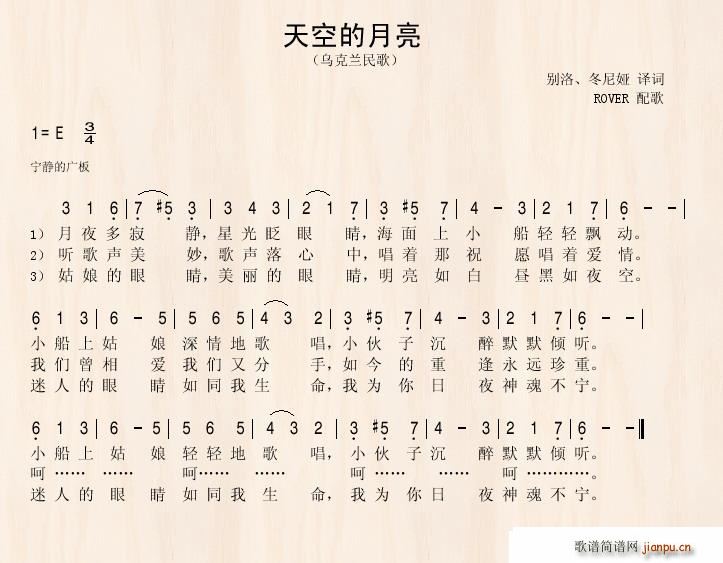 天空的月亮
（乌克兰民歌）
别洛、冬尼娅 译词
ROVER 配歌
1= E 3/4
宁静的广板
3 1 6 | 7 #5 3 | 3 4 3 | 2 1 7 | 3 #5 7 | 4 - 3 | 2 1 7 | 6 - - |
1） 月夜多寂 静，星光眨眼 睛，海面上小 船轻轻飘动。
2） 听歌声美 妙，歌声落心 中，唱着那祝 愿唱着爱情。
3） 姑娘的眼 睛，美丽的眼 睛，明亮如白 昼黑如夜空。
6 1 3 | 6 - 5 | 5 6 5 | 4 3 2 | 3 #5 7 | 4 - 3 | 2 1 7 | 6 - - |
小船上姑 娘深情地歌 唱，小伙子沉 醉默默倾听。
我们曾相 爱我们又分 手，如今的重 逢永远珍重。
迷人的眼 睛如同我生 命，我为你日 夜神魂不宁。
6 1 3 | 6 - 5 | 5 6 5 | 4 3 2 | 3 #5 7 | 4 - 3 | 2 1 7 | 6 - - ||
小船上姑 娘轻轻地歌 唱，小伙子沉 醉默默倾听。
呵 …… …… 呵…… …… 呵 …… …… 呵 …………。
迷人的眼 睛如同我生 命，我为你日 夜神魂不宁。
歌谱简谱网 jianpu.cn